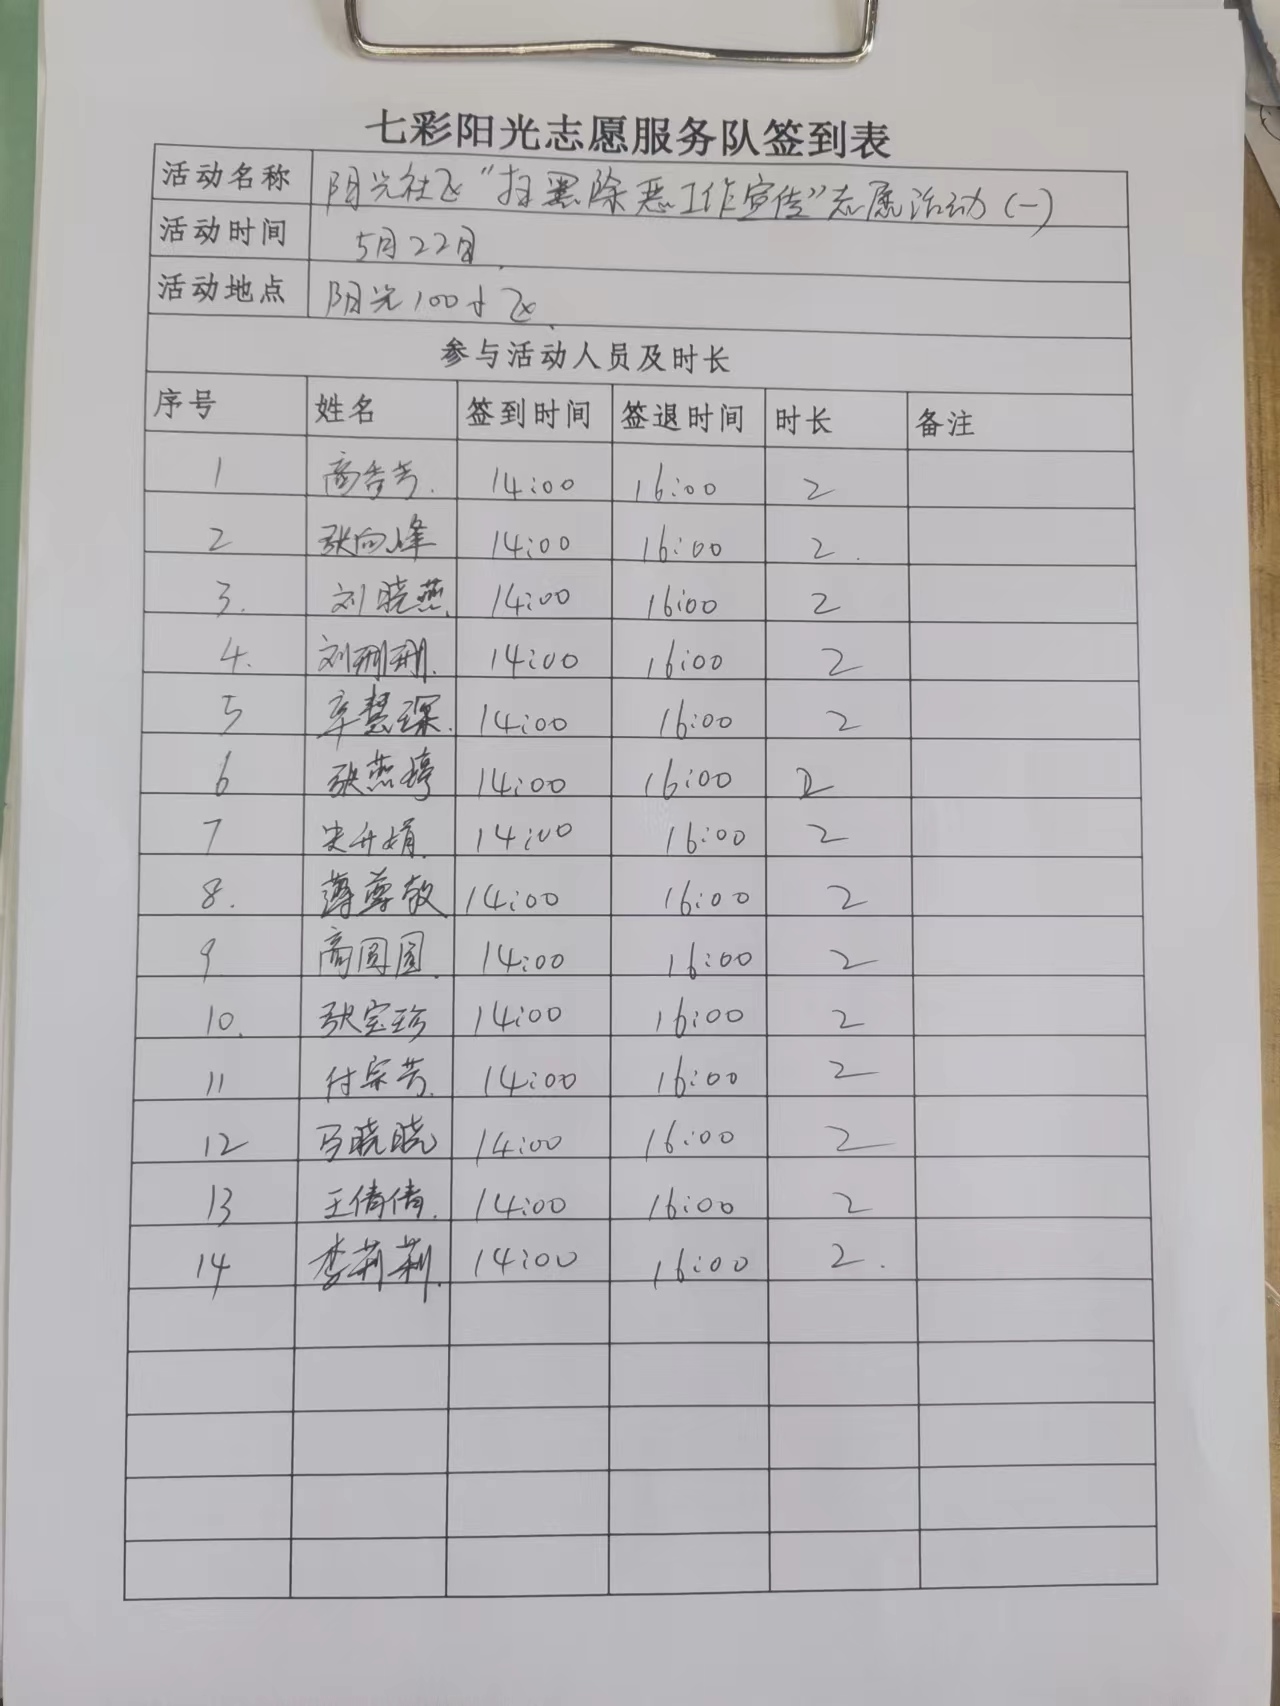 七彩阳光志愿服务队签到表
活动名称 阳光社区“扫黑除恶工作宣传”志愿活动（一）
活动时间 5月22日
活动地点 阳光100小区
参与活动人员及时长
序号 姓名 签到时间 签退时间 时长 备注
1 14:00 16:00 2
2 张向峰 14:00 16:00 2
3. 刘晓燕 14:00 16:00 2
4. 14:00 16:00 2
5 辛慧琛 14:00 16:00 2
6 张燕婷 14:00 16:00 2
7 14:00 16:00 2
8. 14:00 16:00 2
9 商圆圆 14:00 16:00 2
10. 张宝珍 14:00 16:00 2
11 付宗芳 14:00 16:00 2
12 马晓晓 14:00 16:00 2
13 王倩倩 14:00 16:00 2
14 李莉莉 14:00 16:00 2